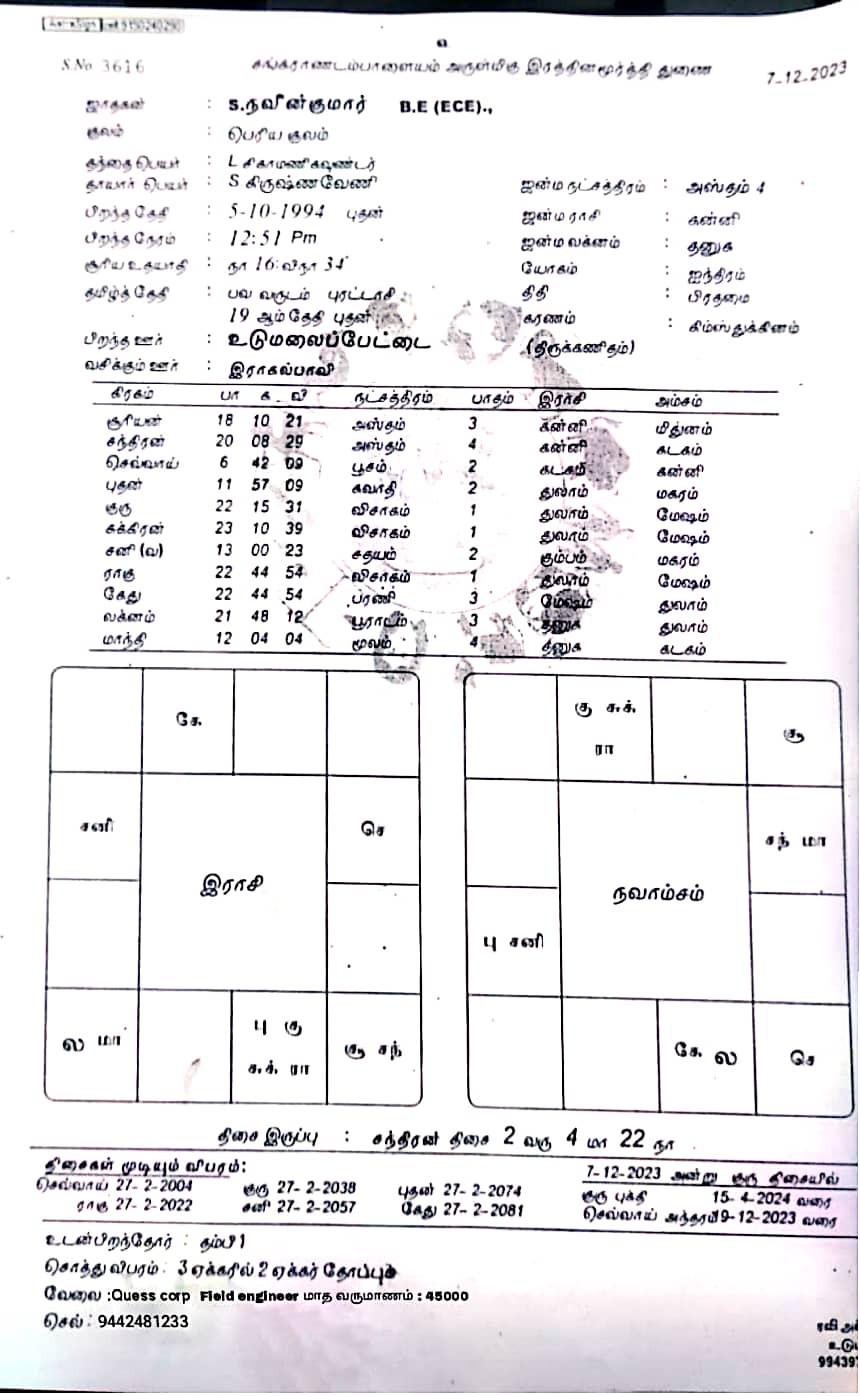 S.No 3616
சங்கராண்டம்பாளையம் அருள்மிகு இரத்தினமூர்த்தி துணை
7-12-2023
ஜாதகன் : S.நவீன்குமார் B.E (ECE).,
குலம் : பெரிய குலம்
தந்தை பெயர் : L சிகாமணிகவுண்டர்
தாயார் பெயர் : S கிருஷ்ணவேணி
ஜன்ம நட்சத்திரம் : அஸ்தம் 4
பிறந்த தேதி : 5-10-1994 புதன்
ஜன்ம ராசி : கன்னி
பிறந்த நேரம் : 12:51 Pm
ஜன்ம லக்னம் : தனுசு
சூரிய உதயாதி : நா 16:விநா 34
யோகம் : ஐந்திரம்
தமிழ்த் தேதி : பவ வருடம் புரட்டாசி
திதி : பிரதமை
19 ஆம் தேதி புதன்
கரணம் : கிம்ஸ்துக்கினம்
பிறந்த ஊர் : உடுமலைப்பேட்டை
(திருக்கணிதம்)
வசிக்கும் ஊர் : இராகல்பாவி
கிரகம் பா க வி நட்சத்திரம் பாதம் இராசி அம்சம்
சூரியன் 18 10 21 அஸ்தம் 3 கன்னி மிதுனம்
சந்திரன் 20 08 29 அஸ்தம் 4 கன்னி கடகம்
செவ்வாய் 6 42 09 பூசம் 2 கடகம் கன்னி
புதன் 11 57 09 சுவாதி 2 துலாம் மகரம்
குரு 22 15 31 விசாகம் 1 துலாம் மேஷம்
சுக்கிரன் 23 10 39 விசாகம் 1 துலாம் மேஷம்
சனி (வ) 13 00 23 சதயம் 2 கும்பம் மகரம்
ராகு 22 44 54 விசாகம் 1 துலாம் மேஷம்
கேது 22 44 54 பரணி 3 மேஷம் துலாம்
லக்னம் 21 48 12 பூராடம் 3 தனுசு துலாம்
மாந்தி 12 04 04 மூலம் 4 தனுசு கடகம்
கே
சனி
செ
இராசி
ல மா
பு கு
சுக் ரா
சூ சந்
கு சுக்
ரா
சூ
சந் மா
நவாம்சம்
பு சனி
கே ல
செ
திசை இருப்பு : சந்திரன் திசை 2 வரு 4 மா 22 நா
திசைகள் முடியும் விபரம்:
செவ்வாய் 27-2-2004 குரு 27-2-2038 புதன் 27-2-2074
ராகு 27-2-2022 சனி 27-2-2057 கேது 27-2-2081
7-12-2023 அன்று குரு திசையில்
குரு புக்தி 15-4-2024 வரை
செவ்வாய் அந்தரம்9-12-2023 வரை
உடன்பிறந்தோர் : தம்பி 1
சொத்து விபரம் : 3 ஏக்கரில் 2 ஏக்கர் தோப்பு
வேலை :Quess corp Field engineer மாத வருமானம் : 45000
செல் : 9442481233
ரவி
உடு
99439